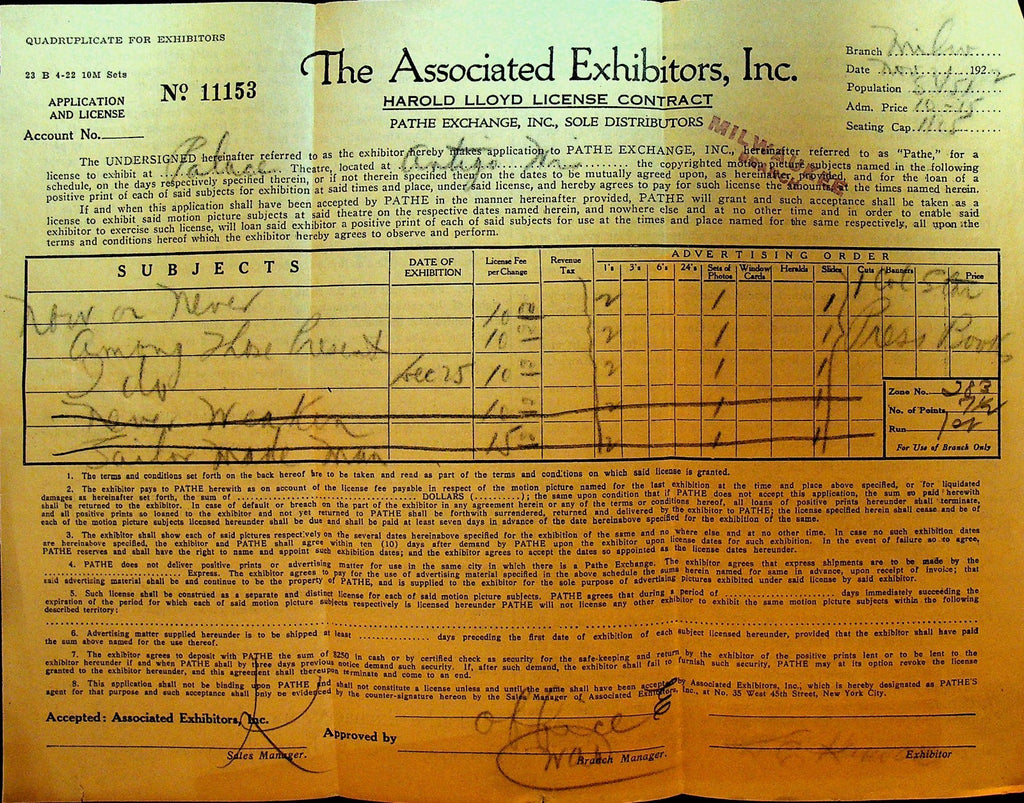 QUADRUPLICATE FOR EXHIBITORS
23 B 4-22 10M Sets
APPLICATION
AND LICENSE
Nº 11153
Account No.
The Associated Exhibitors, Inc.
HAROLD LLOYD LICENSE CONTRACT
PATHE EXCHANGE, INC., SOLE DISTRIBUTORS
Branch
Date 1922
Population
Adm. Price 10-15
Seating Cap.
The UNDERSIGNED hereinafter referred to as the exhibitor hereby makes application to PATHE EXCHANGE, INC., hereinafter referred to as "Pathe," for a
license to exhibit at Palace Theatre, located at Antigo the copyrighted motion picture subjects named in the following
schedule, on the days respectively specified therein, or if not therein specified then on the dates to be mutually agreed upon, as hereinafter provided, and for the loan of a
positive print of each of said subjects for exhibition at said times and place, under said license, and hereby agrees to pay for such license the amount at the times named herein.
If and when this application shall have been accepted by PATHE in the manner hereinafter provided, PATHE will grant and such acceptance shall be taken as a
license to exhibit said motion picture subjects at said theatre on the respective dates named herein, and nowhere else and at no other time and in order to enable said
exhibitor to exercise such license, will loan said exhibitor a positive print of each of said subjects for use at the times and place named for the same respectively, all upon the
terms and conditions hereof which the exhibitor hereby agrees to observe and perform.
SUBJECTS DATE OF EXHIBITION License Fee per Change Revenue Tax ADVERTISING ORDER
1's 3's 6's 24's Sets of Photos Window Cards Heralds Slides Cuts Banners Price
Now or Never 10 2 1 1 1 Col Star
Among Those Present 10 2 1 1 Press Book
I do Dec 25 10 2 1 1
Never Weaken 10 2 1 1
Sailor Made Man 15 2 1 1
Zone No. 283
No. of Points 7½
Run 1st
For Use of Branch Only
1. The terms and conditions set forth on the back hereof are to be taken and read as part of the terms and conditions on which said license is granted.
2. The exhibitor pays to PATHE herewith as on account of the license fee payable in respect of the motion picture named for the last exhibition at the time and place above specified, or for liquidated
damages as hereinafter set forth, the sum of DOLLARS ( ); the same upon condition that if PATHE does not accept this application, the sum so paid herewith
shall be returned to the exhibitor. In case of default or breach on the part of the exhibitor in any agreement herein or any of the terms or conditions hereof, all loans of positive prints hereunder shall terminate,
and all positive prints so loaned to the exhibitor and not yet returned to PATHE shall be forthwith surrendered, returned and delivered by the exhibitor to PATHE; the license specified herein shall cease and be of
each of the motion picture subjects licensed hereunder shall be due and shall be paid at least seven days in advance of the date hereinabove specified for the exhibition of the same.
3. The exhibitor shall show each of said pictures respectively on the several dates hereinabove specified for the exhibition of the same and no where else and at no other time. In case no such exhibition dates
are hereinabove specified, the exhibitor and PATHE shall agree within ten (10) days after demand by PATHE upon the exhibitor upon license dates for such exhibition. In the event of failure so to agree,
PATHE reserves and shall have the right to name and appoint such exhibition dates; and the exhibitor agrees to accept the dates so appointed as the license dates hereunder.
4. PATHE does not deliver positive prints or advertising matter for use in the same city in which there is a Pathe Exchange. The exhibitor agrees that express shipments are to be made by the
Express. The exhibitor agrees to pay for the use of advertising material specified in the above schedule the sums herein named for same in advance, upon receipt of invoice; that
said advertising material shall be and continue to be the property of PATHE, and is supplied to the exhibitor for the sole purpose of advertising pictures exhibited under said license by said exhibitor.
5. Such license shall be construed as a separate and distinct license for each of said motion picture subjects. PATHE agrees that during a period of days immediately succeeding the
expiration of the period for which each of said motion picture subjects respectively is licensed hereunder PATHE will not license any other exhibitor to exhibit the same motion picture subjects within the following
described territory:
6. Advertising matter supplied hereunder is to be shipped at least days preceding the first date of exhibition of each subject licensed hereunder, provided that the exhibitor shall have paid
the sum above named for the use thereof.
7. The exhibitor agrees to deposit with PATHE the sum of $250 in cash or by certified check as security for the safe-keeping and return by the exhibitor of the positive prints lent or to be lent to the
exhibitor hereunder if and when PATHE shall by three days previous notice demand such security. If, after such demand, the exhibitor shall fail to furnish such security, PATHE may at its option revoke the license
granted to the exhibitor hereunder, and this agreement shall thereupon terminate and come to an end.
8. This application shall not be binding upon PATHE and shall not constitute a license unless and until the same shall have been accepted by Associated Exhibitors, Inc., which is hereby designated as PATHE'S
agent for that purpose and such acceptance shall only be evidenced by the counter-signature hereon by the Sales Manager of Associated Exhibitors, Inc., at No. 35 West 45th Street, New York City.
Accepted: Associated Exhibitors, Inc.
Sales Manager.
Approved by
Branch Manager.
Exhibitor